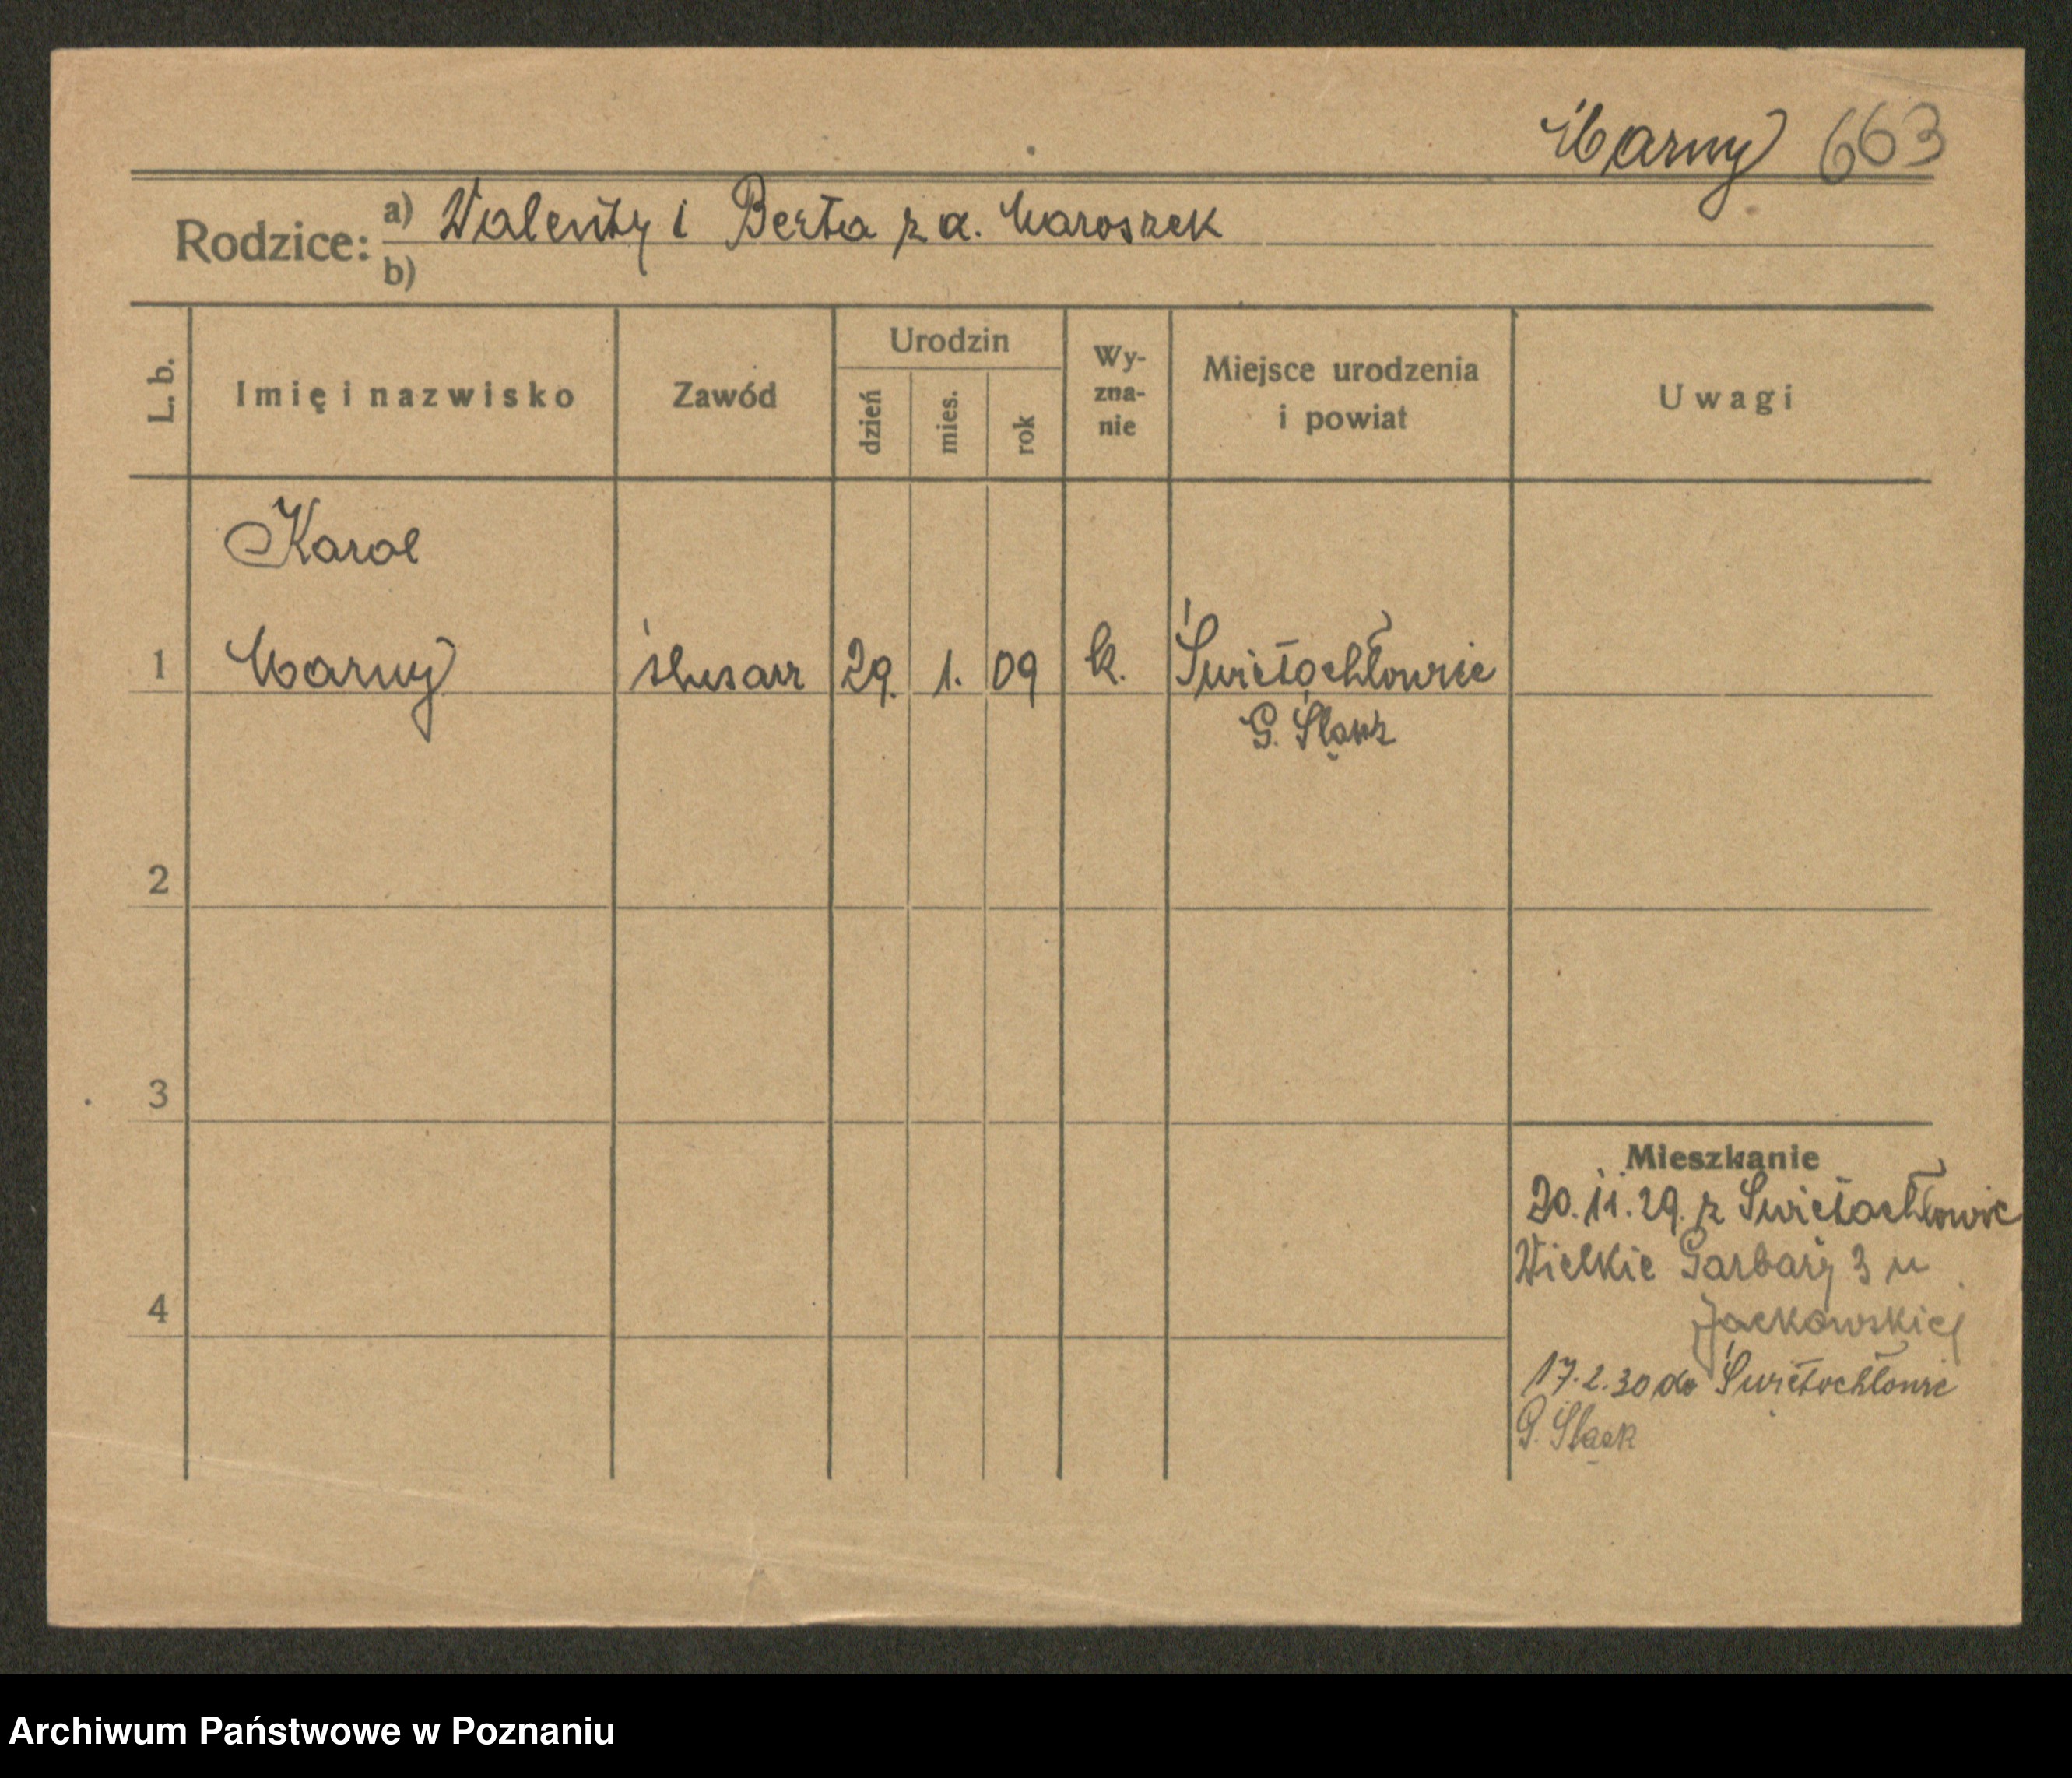 Czarny 663
Rodzice: a) Walenty i Berta z d. Czaroszek
b)
L. b. Imię i nazwisko Zawód Urodzin dzień mies. rok Wyznanie Miejsce urodzenia i powiat Uwagi
Karol
1 Czarny ślusarz 29. 1. 09 k. Świętochłowice
G. Śląsk
2
3
Mieszkanie
20.11.29. z Świętochłowic
Wielkie Garbary 3 u
4 Jackowskiej
17.2.30 do Świętochłowic
G. Śląsk
Archiwum Państwowe w Poznaniu